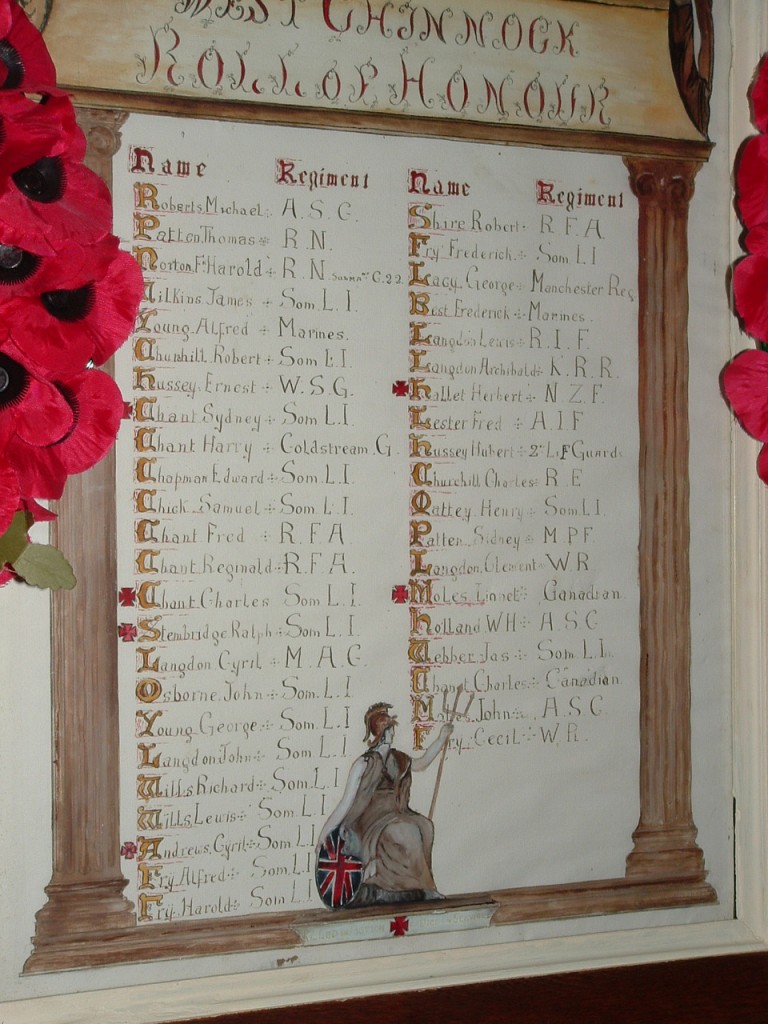 WEST CHINNOCK
ROLL OF HONOUR
Name Regiment
Roberts Michael A.S.C.
Patten Thomas R.N.
Norton F. Harold R.N. C.22
Wilkins James Som L.I.
Young Alfred Marines.
Churchill Robert Som L.I.
Hussey Ernest W.S.G.
Chant Sydney Som L.I.
Chant Harry Coldstream G.
Chapman Edward Som L.I.
Chick Samuel Som L.I.
Chant Fred R.F.A.
Chant Reginald R.F.A.
Chant Charles Som L.I.
Stembridge Ralph Som L.I.
Langdon Cyril M.A.C.
Osborne John Som L.I
Young George Som L.I
Langdon John Som L.I
Wills Richard Som L.I
Wills Lewis Som L.I
Andrews Cyril Som L.I
Fry Alfred Som L.I
Fry Harold Som L.I
Name Regiment
Shire Robert R.F.A
Fry Frederick Som L.I
Lacy George Manchester Reg
Best Frederick Marines.
Langdon Lewis R.I.F.
Langdon Archibald K.R.R.
Hallet Herbert N.Z.F.
Lester Fred A.I.F
Hussey Hubert 2nd L.F Guards
Churchill Charles R.E
Oattey Henry Som L.I.
Patten Sidney M.P.F
Langdon Clement W.R
Moles Lionel Canadian
Holland W H A.S.C
Webber Jas Som L.I.
Chant Charles Canadian
Moles John A.S.C.
Fry Cecil W.R.